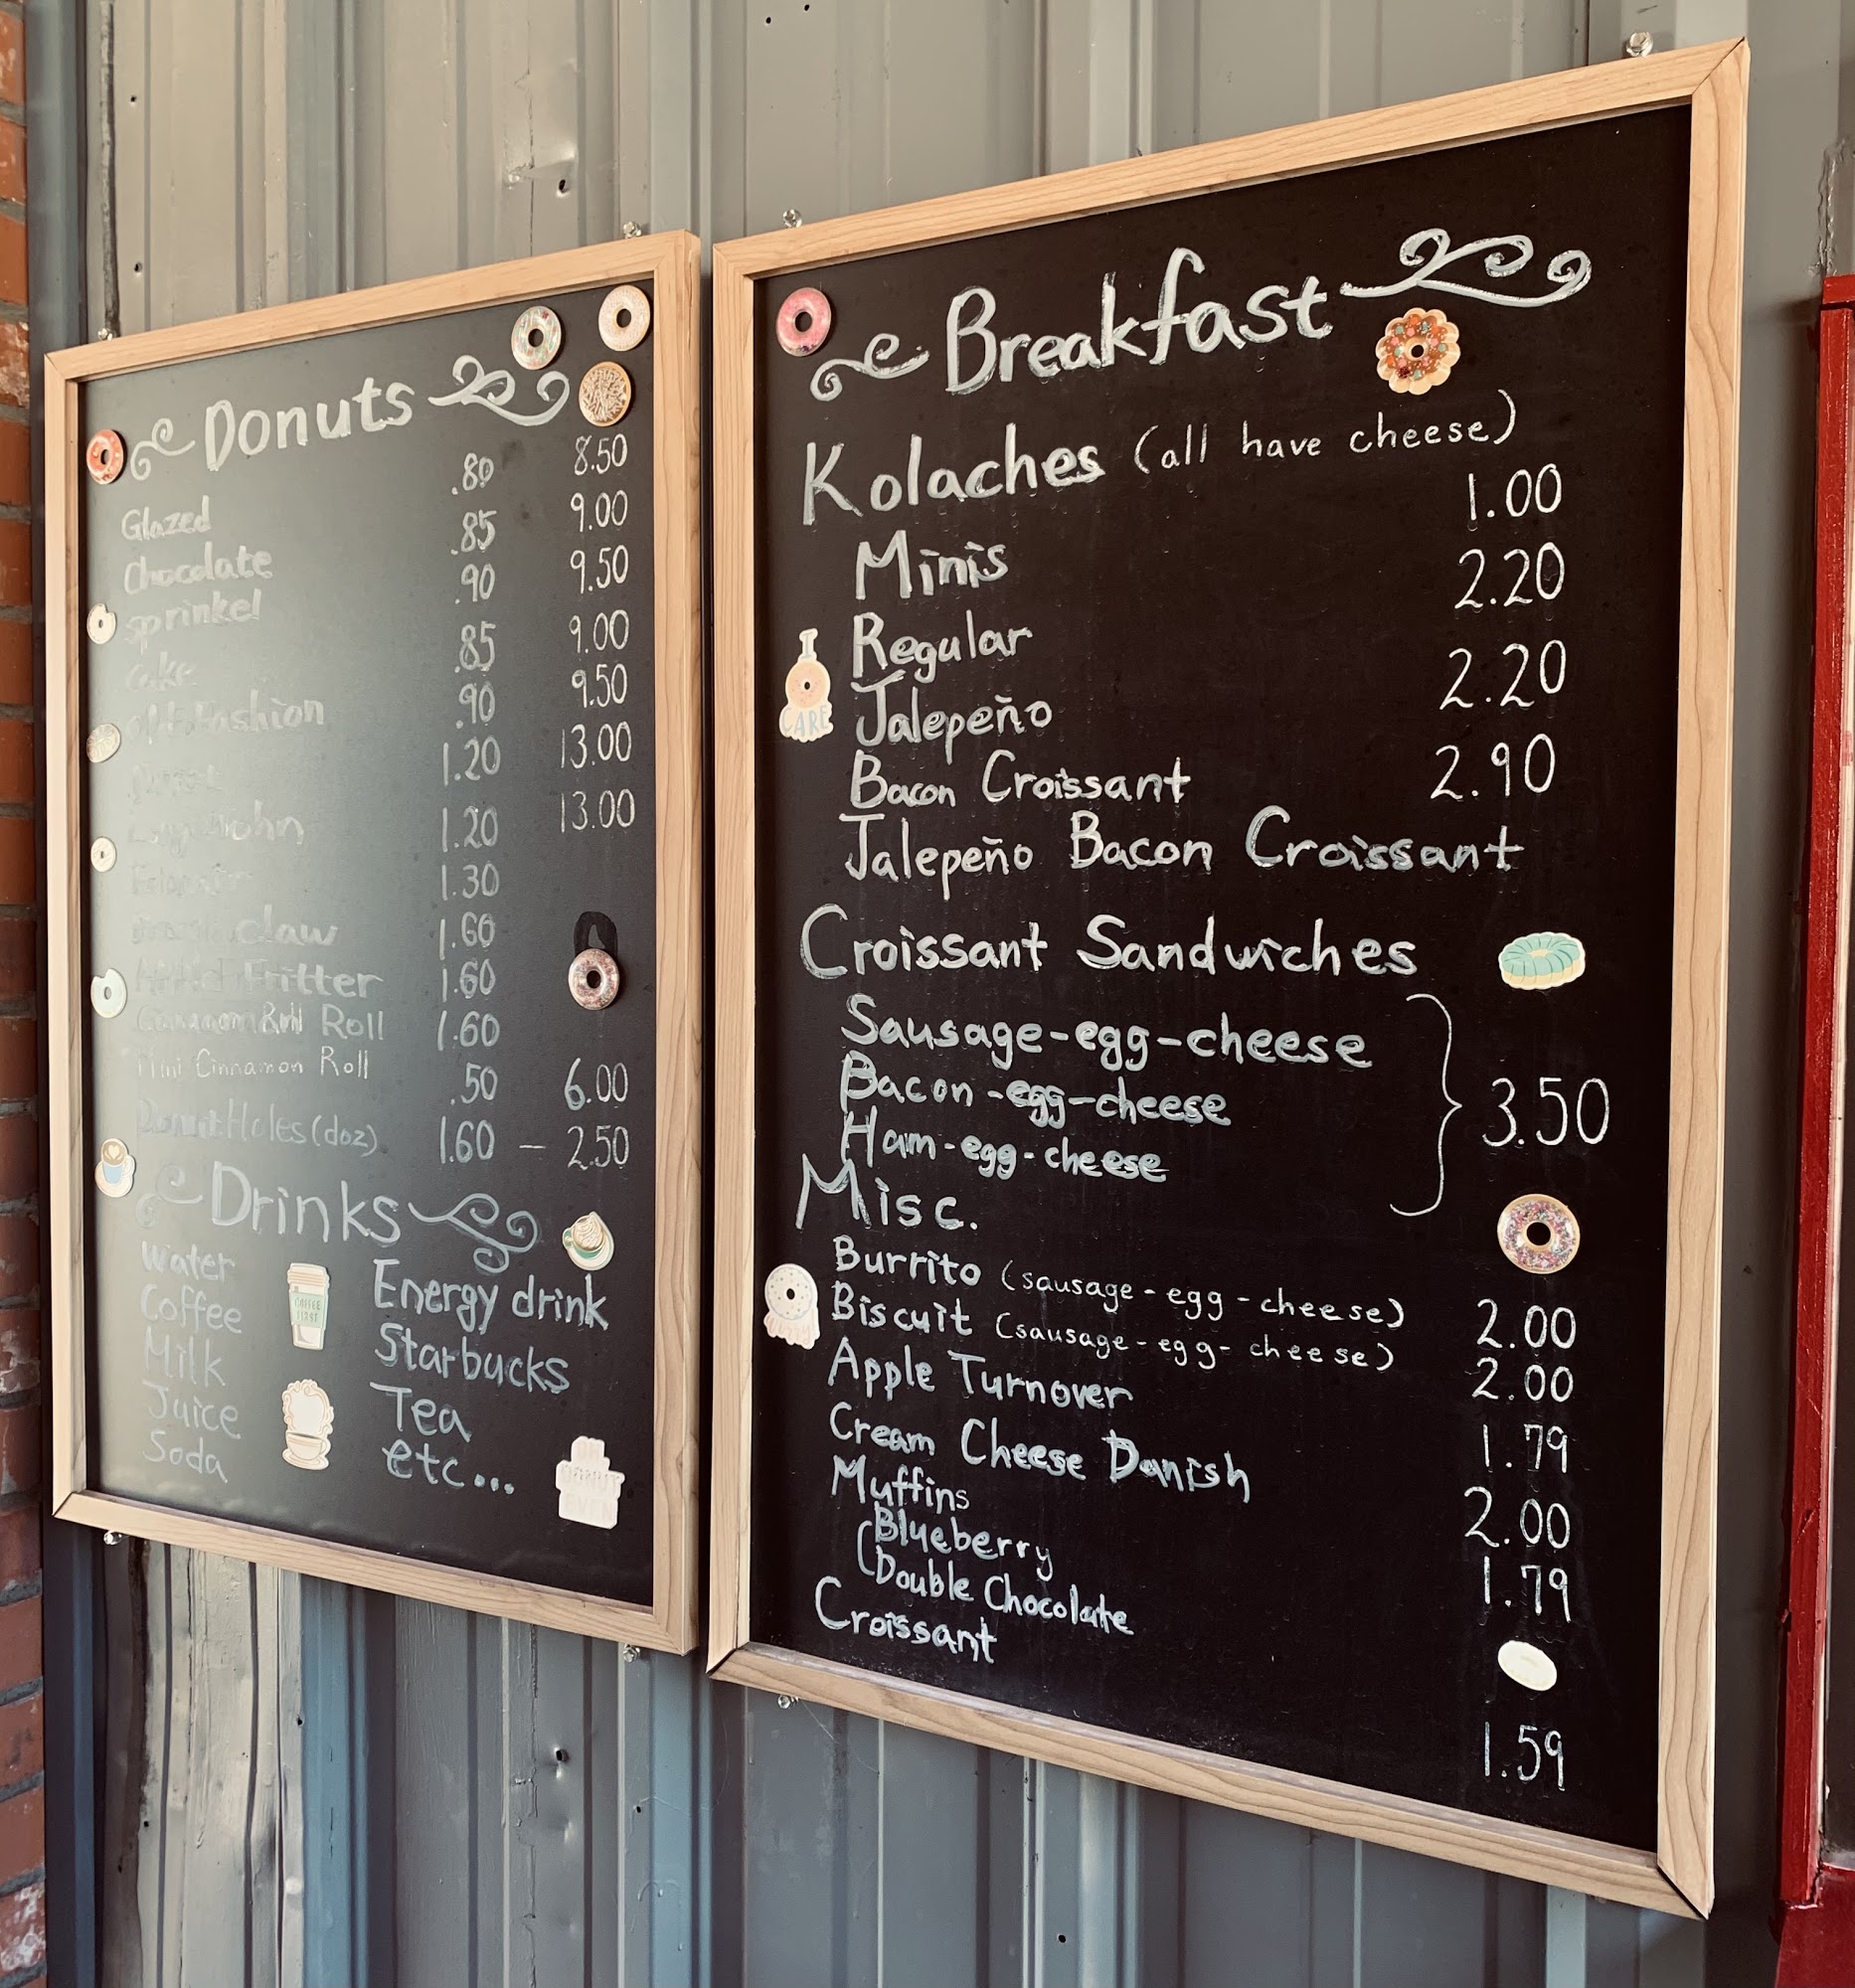 Donuts
Glazed .80 8.50
Chocolate .85 9.00
sprinkel .90 9.50
cake .85 9.00
Fashion .90 9.50
1.20 13.00
John 1.20 13.00
1.30
claw 1.60
Fritter 1.60
Cinnamon Roll Roll 1.60
Mini Cinnamon Roll .50 6.00
Donut Holes (doz) 1.60 — 2.50
Drinks
Water
Coffee
Milk
Juice
Soda
Energy drink
Starbucks
Tea
etc...
COFFEE FIRST
OH
DONUT
EVEN
Breakfast
Kolaches (all have cheese)
Minis 1.00
Regular 2.20
Jalepeño 2.20
Bacon Croissant 2.90
Jalepeño Bacon Croissant
CARE
Croissant Sandwiches
Sausage-egg-cheese
Bacon-egg-cheese 3.50
Ham-egg-cheese
Misc.
Burrito (sausage-egg-cheese) 2.00
Biscuit (sausage-egg-cheese) 2.00
Apple Turnover 1.79
Cream Cheese Danish 2.00
Muffins 1.79
Blueberry
Double Chocolate
Croissant 1.59